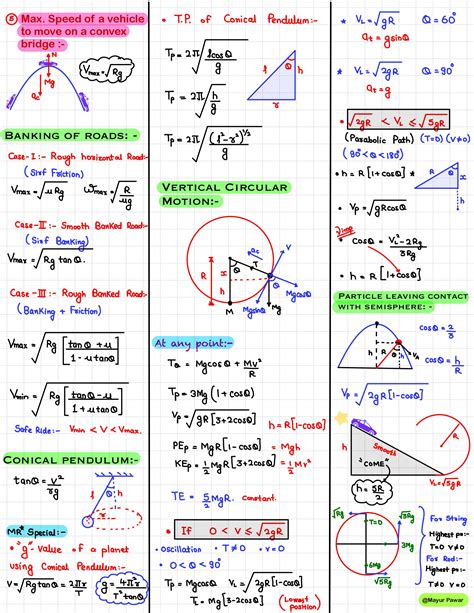 ⑤ Max. Speed of a vehicle
to move on a convex
bridge :-
N
Vmax = √Rg
Mg
ac
BANKING OF ROADS: -
Case-I:- Rough horizontal Road:-
(Sirf Friction)
Vmax = √μRg ωmax = √(μg/R)
Case-II:- Smooth Banked Road:-
(Sirf Banking)
Vmax = √Rg tanθ.
Case-III:- Rough Banked Road:-
(Banking + Friction)
Vmax = √Rg [tanθ + μ / 1 - μtanθ]
Vmin = √Rg [tanθ - μ / 1 + μtanθ]
Safe Ride:- Vmin < V < Vmax.
CONICAL PENDULUM:-
tanθ = v²/rg
θ
h
r
MR* Special:-
• "g" Value of a planet
using Conical Pendulum:-
V = √Rg tanθ = 2πr/T g = 4π²r / T² tanθ
• T.P. of Conical Pendulum:-
Tp = 2π √(lcosθ/g)
Tp = 2π √(h/g)
Tp = 2π √((l²-r²)^1/2 / g)
l
θ
h
r
VERTICAL CIRCULAR
MOTION:-
R
θ
T
ac
V
R
h
M
Mg
Mgsinθ
Mgcosθ
At any point:-
Tθ = Mgcosθ + Mv²/R
Tp = 3Mg(1+cosθ)
Vp = √gR[3+2cosθ]
h = R[1-cosθ]
PEp = MgR[1-cosθ] = Mgh
KEp = 1/2 MgR[3+2cosθ] = 1/2 Mv²
TE = 5/2 MgR. constant.
• If 0 < V ≤ √2gR
• Oscillation • T≠0 • v=0
Tp = Mgcosθ VL = √2gR[1-cosθ]
(Lowest position)
* VL = √gR θ = 60°
at = gsinθ
* VL = √2gR θ = 90°
at = g
• √2gR < VL ≤ √5gR
(Parabolic Path) (T=0) (V≠0)
(90° < θ < 180°)
• h = R[1+cosθ] *
• Vp = √gRcosθ
R
h
θ
Jimp
• cosθ = VL²-2Rg / 3Rg
• h = R[1+cosθ]
PARTICLE LEAVING CONTACT
WITH SEMISPHERE: -
cosθ = 2/3
cosθ = h/R
h
θ
R
VA
Vp = √2gR[1-cosθ]
h
Smooth
"COME"
h = 5R/2
R
VL = √5gR
√Rg
√3Rg
T=0
3Mg
6Mg
√5Rg
For String
Highest pt:-
T=0
For Rod:-
Highest pt:-
V=0
@Mayur Pawar